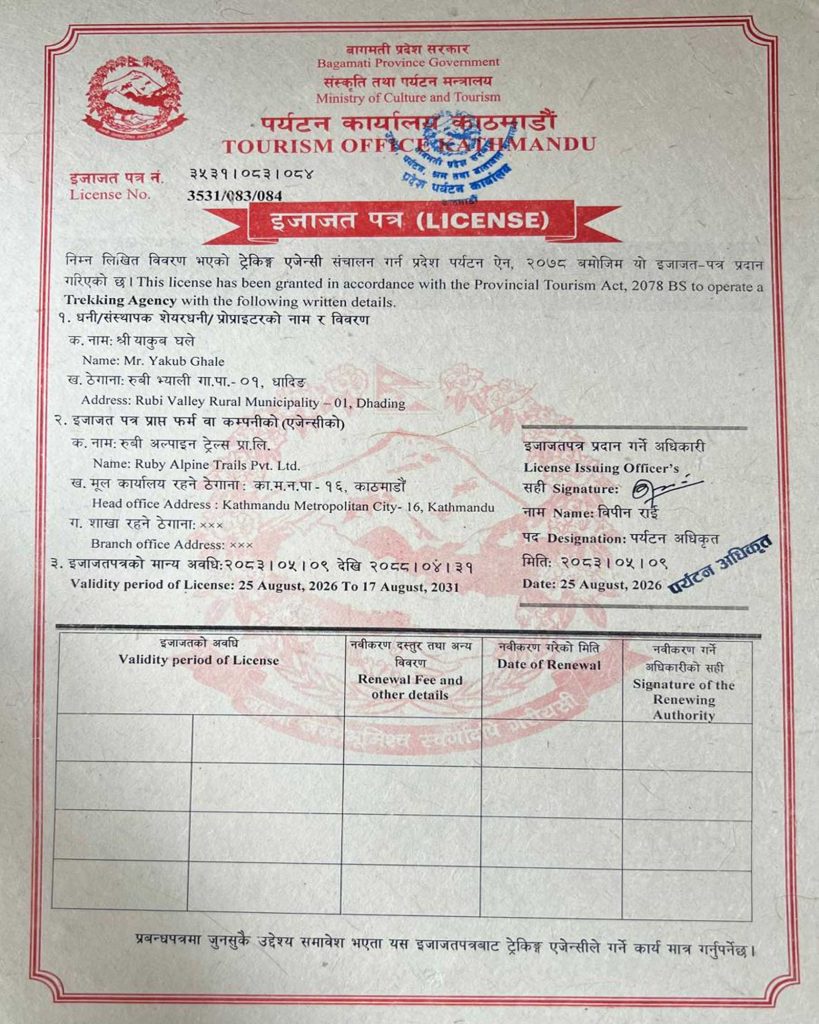 बागमती प्रदेश सरकार
Bagamati Province Government
संस्कृति तथा पर्यटन मन्त्रालय
Ministry of Culture and Tourism
पर्यटन कार्यालय काठमाडौं
TOURISM OFFICE KATHMANDU
प्रदेश पर्यटन कार्यालय
काठमाडौं
इजाजत पत्र नं. ३५३१।०८३।०८४
License No. 3531/083/084
इजाजत पत्र (LICENSE)
निम्न लिखित विवरण भएको ट्रेकिङ्ग एजेन्सी संचालन गर्न प्रदेश पर्यटन ऐन, २०७८ बमोजिम यो इजाजत-पत्र प्रदान
गरिएको छ। This license has been granted in accordance with the Provincial Tourism Act, 2078 BS to operate a
Trekking Agency with the following written details.
१. धनी/संस्थापक शेयरधनी/ प्रोप्राइटरको नाम र विवरण
क. नाम: श्री याकुब घले
Name: Mr. Yakub Ghale
ख. ठेगाना: रुबी भ्याली गा.पा.- ०१, धादिङ
Address: Rubi Valley Rural Municipality – 01, Dhading
२. इजाजत पत्र प्राप्त फर्म वा कम्पनीको (एजेन्सीको)
क. नाम: रुबी अल्पाइन ट्रेल्स प्रा.लि.
Name: Ruby Alpine Trails Pvt. Ltd.
ख. मूल कार्यालय रहने ठेगाना : का.म.न.पा - १६, काठमाडौं
Head office Address : Kathmandu Metropolitan City- 16, Kathmandu
ग. शाखा रहने ठेगाना: ×××
Branch office Address: ×××
३. इजाजतपत्रको मान्य अवधि:२०८३।०५।०९ देखि २०८८।०४।३१
Validity period of License: 25 August, 2026 To 17 August, 2031
इजाजतपत्र प्रदान गर्ने अधिकारी
License Issuing Officer's
सही Signature:
नाम Name: विपीन राई
पद Designation: पर्यटन अधिकृत
मिति: २०८३।०५।०९
Date: 25 August, 2026
पर्यटन अधिकृत
इजाजतको अवधि
Validity period of License
नवीकरण दस्तुर तथा अन्य
विवरण
Renewal Fee and
other details
नवीकरण गरेको मिति
Date of Renewal
नवीकरण गर्ने
अधिकारीको सही
Signature of the
Renewing
Authority
प्रबन्धपत्रमा जुनसुकै उद्देश्य समावेश भएता यस इजाजतपत्रबाट ट्रेकिङ्ग एजेन्सीले गर्ने कार्य मात्र गर्नुपर्नेछ।